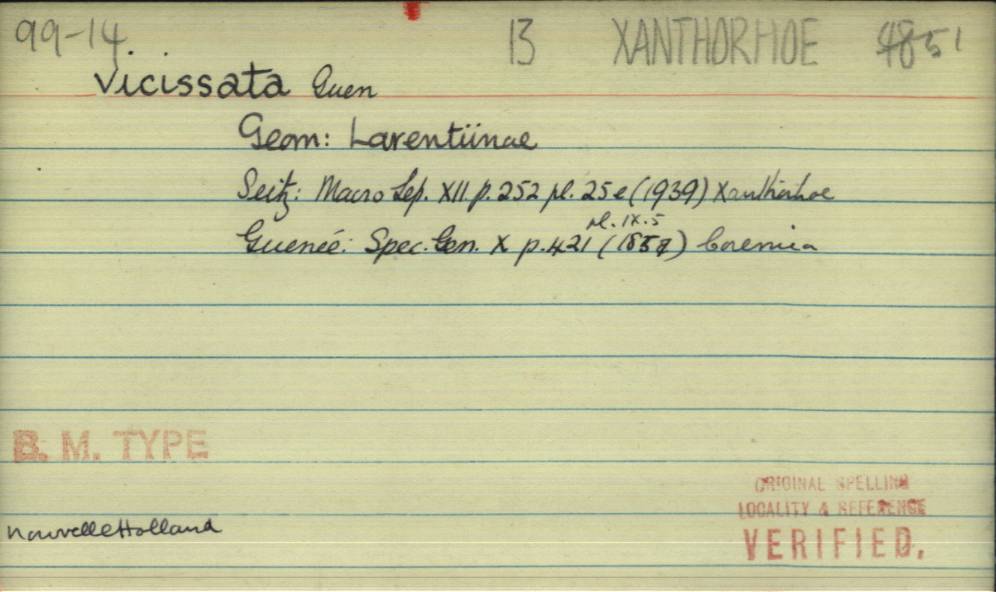 99-14. 13 XANTHORHOE 4851
vicissata Guen
Geom: Larentiinae
Seitz: Macro Lep. XII. p. 252 pl. 25e (1939) Xanthorhoe
pl. IX.5
Gueneé: Spec. Gen. X p. 421 (1857) Coremia
B. M. TYPE
ORIGINAL SPELLING
LOCALITY & REFERENCE
VERIFIED.
Nouvelle Holland